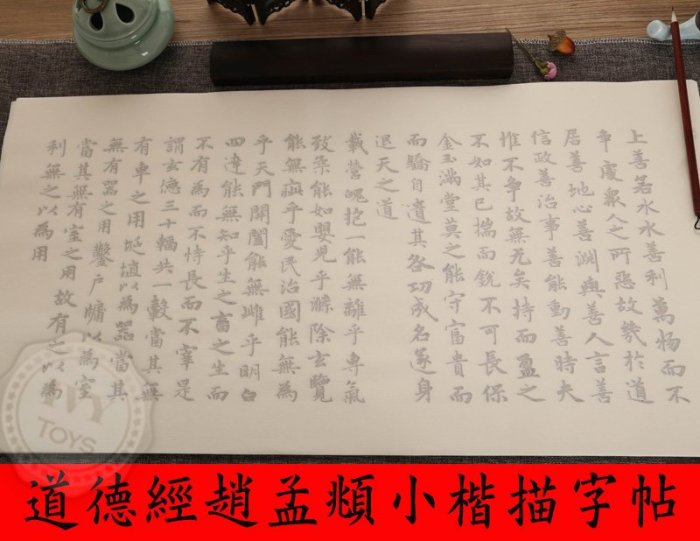 上善若水水善利萬物而不
爭處衆人之所惡故幾於道
居善地心善淵與善人言善
信政善治事善能動善時夫
惟不爭故無尤矣持而盈之
不如其已揣而銳不可長保
金玉滿堂莫之能守富貴而
而驕自遺其咎功成名遂身
退天之道
載營魄抱一能無離乎專氣
致柔能如嬰兒乎滌除玄覽
能無疵乎愛民治國能無為
乎天門開闔能無雌乎明白
四達能無知乎生之畜之生而
不有為而不恃長而不宰是
謂玄德三十輻共一轂當其無
有車之用埏埴以為器當其
無有器之用鑿戶牖以為室
當其無有室之用故有之以為
利無之以為用
TOYS
道德經趙孟頫小楷描字帖